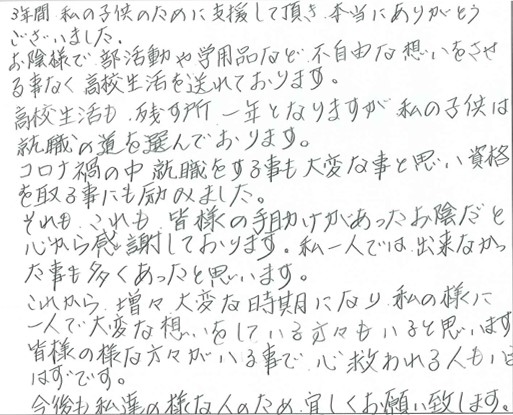 3年間 私の子供のために支援して頂き 本当にありがとう
ございました.
お陰様で 部活動や学用品など 不自由な想いをさせ
る事なく 高校生活を送れております。
高校生活も 残す所 一年となりますが 私の子供は
就職の道を選んでおります。
コロナ禍の中 就職をする事も大変な事と思い 資格
を取る事にも励みました。
それも これも 皆様の手助けがあったお陰だと
心から感謝しております。私一人では 出来なかっ
た事も多くあったと思います。
これから 増々 大変な時期になり 私の様に
一人で大変な想いをしている方々もいると思います
皆様の様な方々がいる事で 心救われる人もい
はずです。
今後も私達の様な人のため 宜しくお願い致します。